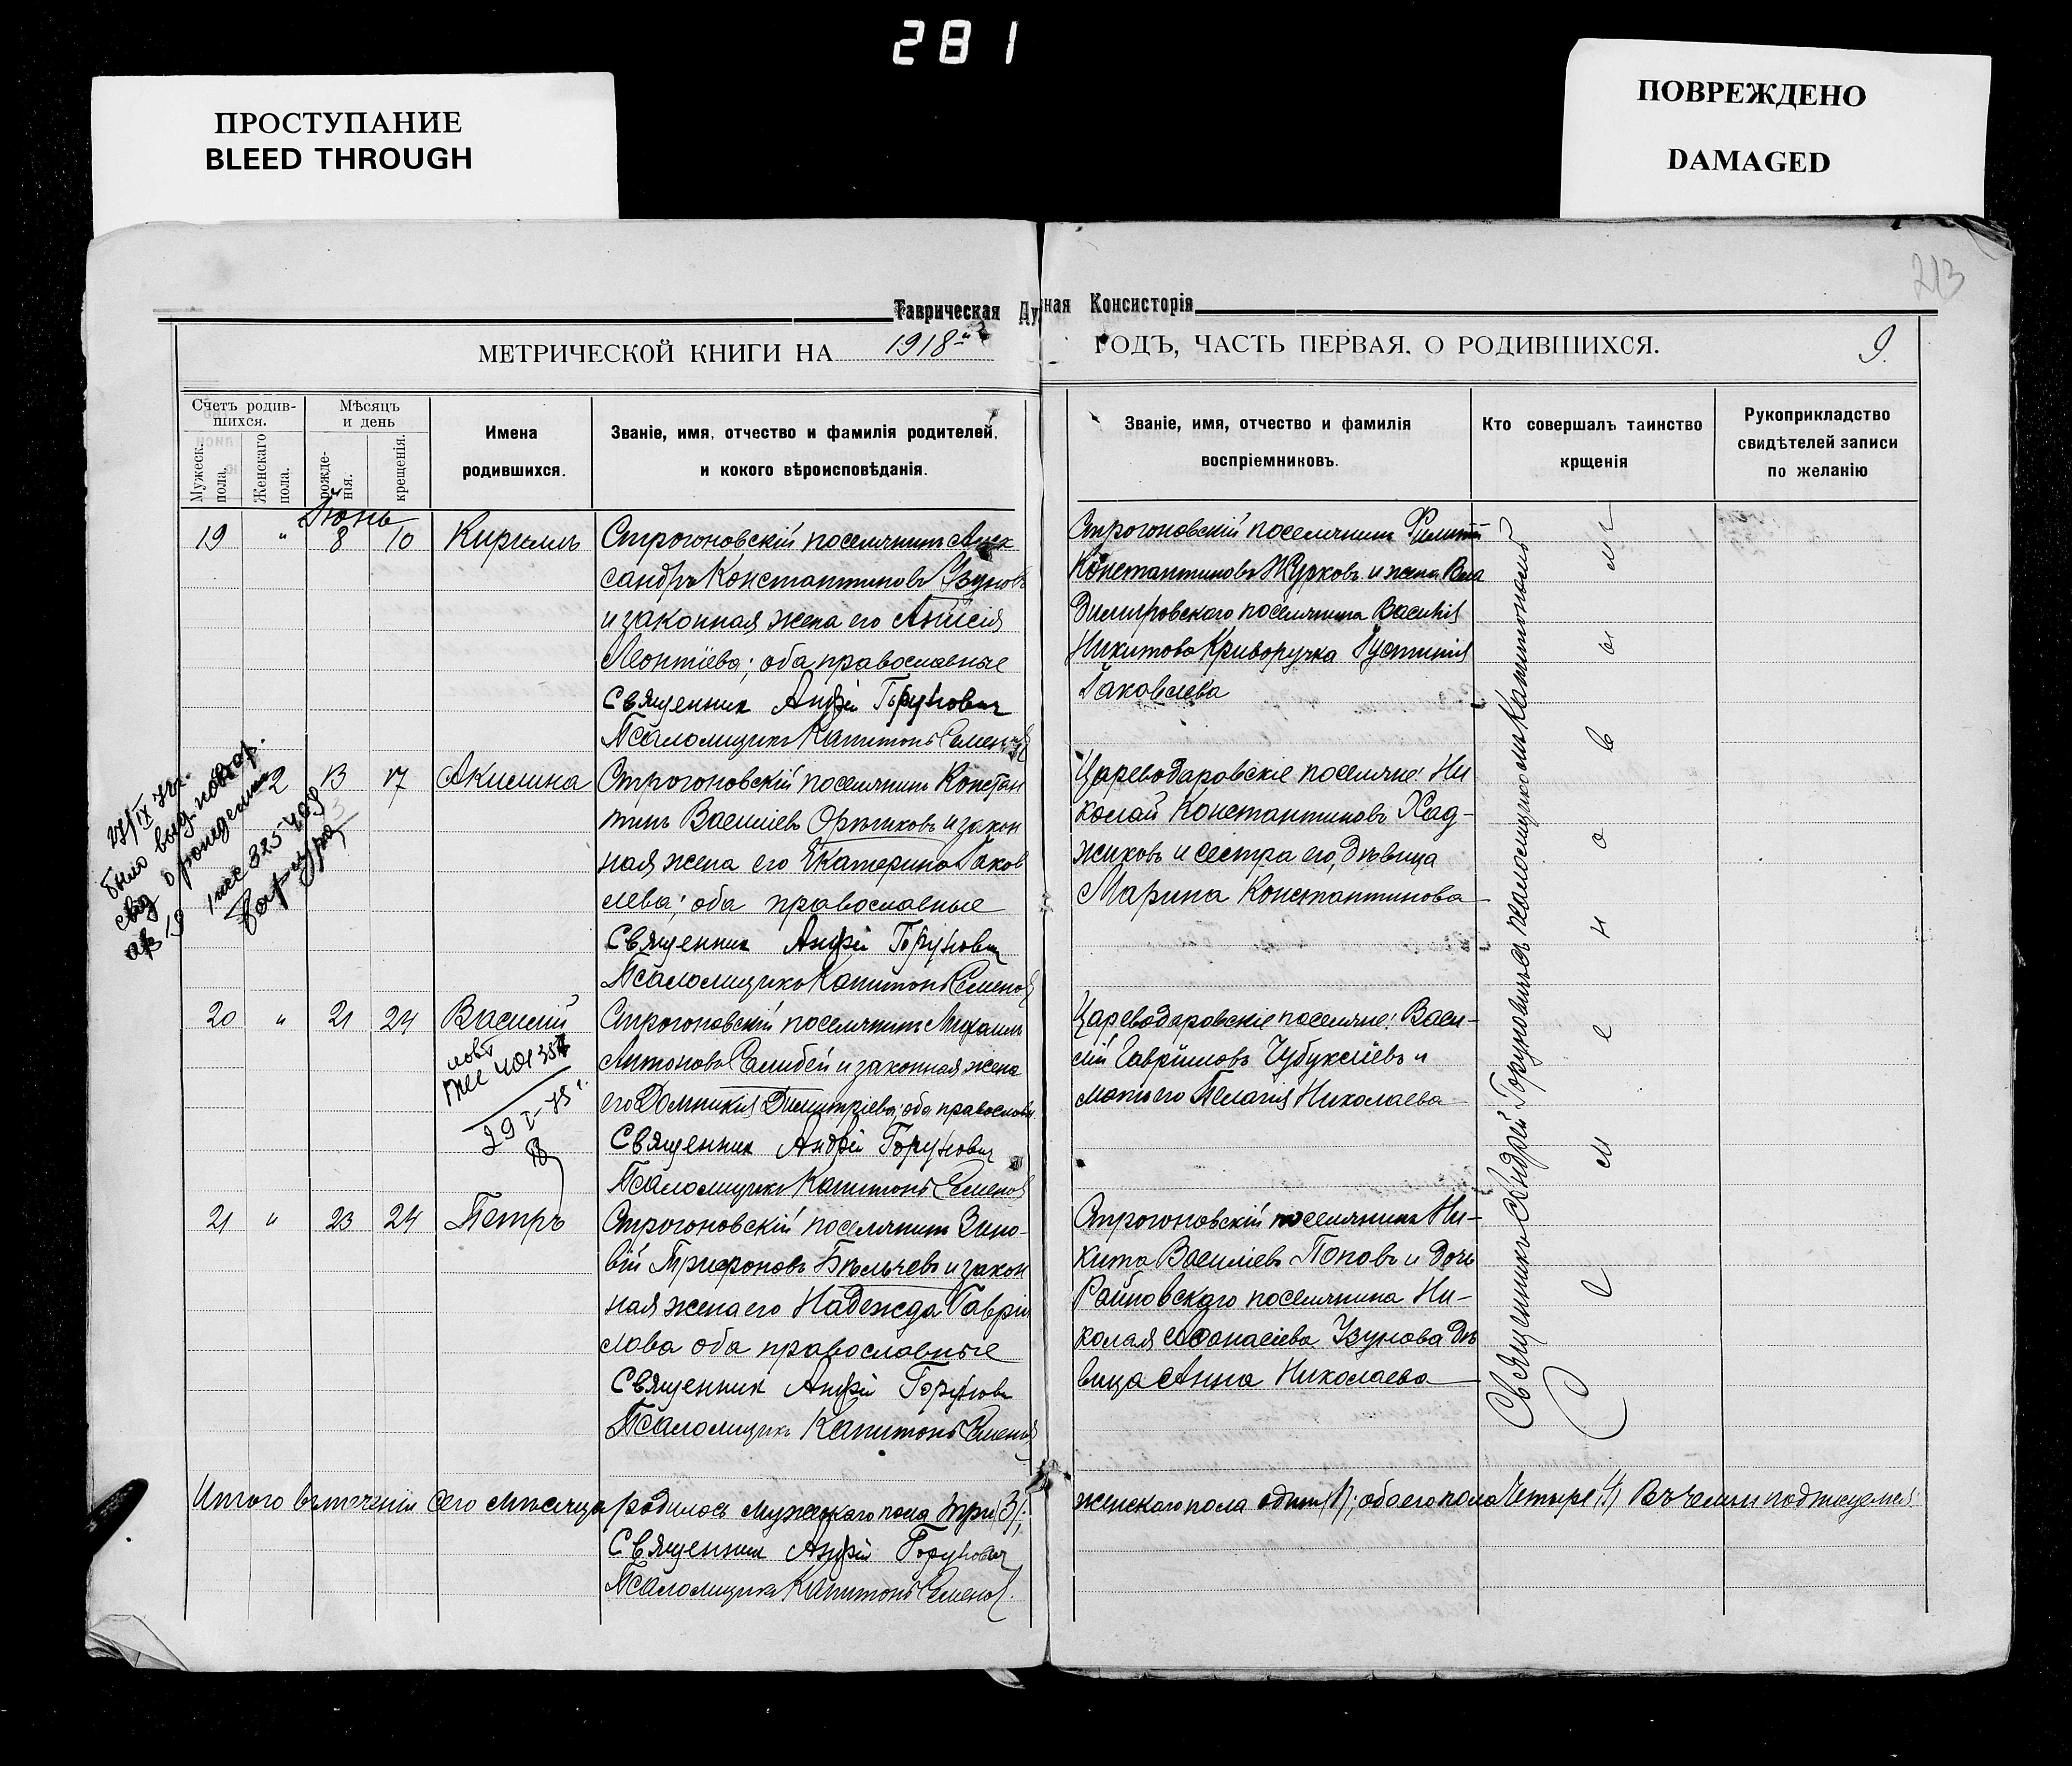 281
ПРОСТУПАНИЕ
BLEED THROUGH
ПОВРЕЖДЕНО
DAMAGED
213
Таврическая Ду
ная Консисторія
МЕТРИЧЕСКОЙ КНИГИ НА 1918-й
ГОДЪ, ЧАСТЬ ПЕРВАЯ, О РОДИВШИХСЯ.
9.
Счетъ родив-
шихся.
Мужеск. пола.
Женскаго пола.
Мѣсяцъ
и день
рожде-
нія.
крещенія.
Имена
родившихся.
Званіе, имя, отчество и фамилія родителей,
и кокого вѣроисповѣданія.
Званіе, имя, отчество и фамилія
воспріемниковъ.
Кто совершалъ таинство
крщенія
Рукоприкладство
свидѣтелей записи
по желанію
Іюнь
19 " 8 10 Кириллъ
Строгоновскій поселянинъ Алек
сандръ Константиновъ Узуновъ
и законная жена его Анисія
Леонтіева; оба православные
Священник Андрій Горунович
Псаломщикъ Капитонъ Семенов
Строгоновскій поселянинъ Филиппъ
Константиновъ Журковъ и жена Вла
димировскаго поселянина Василія
Никитова Криворучка Іустинія
Іаковлева
2 13 17 Акилина
Строгоновскій поселянинъ Констан
тинъ Василіевъ Орѣшковъ и закон
ная жена его Екатерина Іаков
лева; оба православные
Священник Андрій Горунович
Псаломщикъ Капитонъ Семенов
Цареводаровскіе поселяне: Ни
колай Константиновъ Хад-
жиковъ и сестра его, дѣвица
Марина Константинова
27/IX 74г.
было выд. повтор.
свид о рождении
20 " 21 24 Василій
повт
29 I-75г.
Строгоновскій поселянинъ Михаилъ
Антоновъ Селибей и законная жена
его Домникія Димитріева; оба православн.
Священник Андрій Горунович
Псаломщикъ Капитонъ Семенов
Цареводаровскіе поселяне: Васи-
лій Гавріиловъ Чубукліевъ и
мать его Пелагія Николаева
21 " 23 24 Петръ
Строгоновскій поселянинъ Зино-
вій Трифоновъ Бѣльчевъ и закон
ная жена его Надежда Гавріи
лова оба православные
Священник Андрій Горунович
Псаломщикъ Капитонъ Семенов
Строгоновскій поселянинъ Ни-
кита Василіевъ Поповъ и дочь
Райновскаго поселянина Ни-
колая Афанасіева Узунова дѣ
вица Анна Николаева
Священникъ Андрей Горуновичъ съ псаломщикомъ Капитономъ
Семеновымъ
Итого въ теченіи сего мѣсяца родилось мужескаго пола три (3);
женскаго пола одинъ (1); обоего пола четыре (4) Въ чемъ и подписуемся:
Священник Андрій Горунович
Псаломщикъ Капитонъ Семенов.